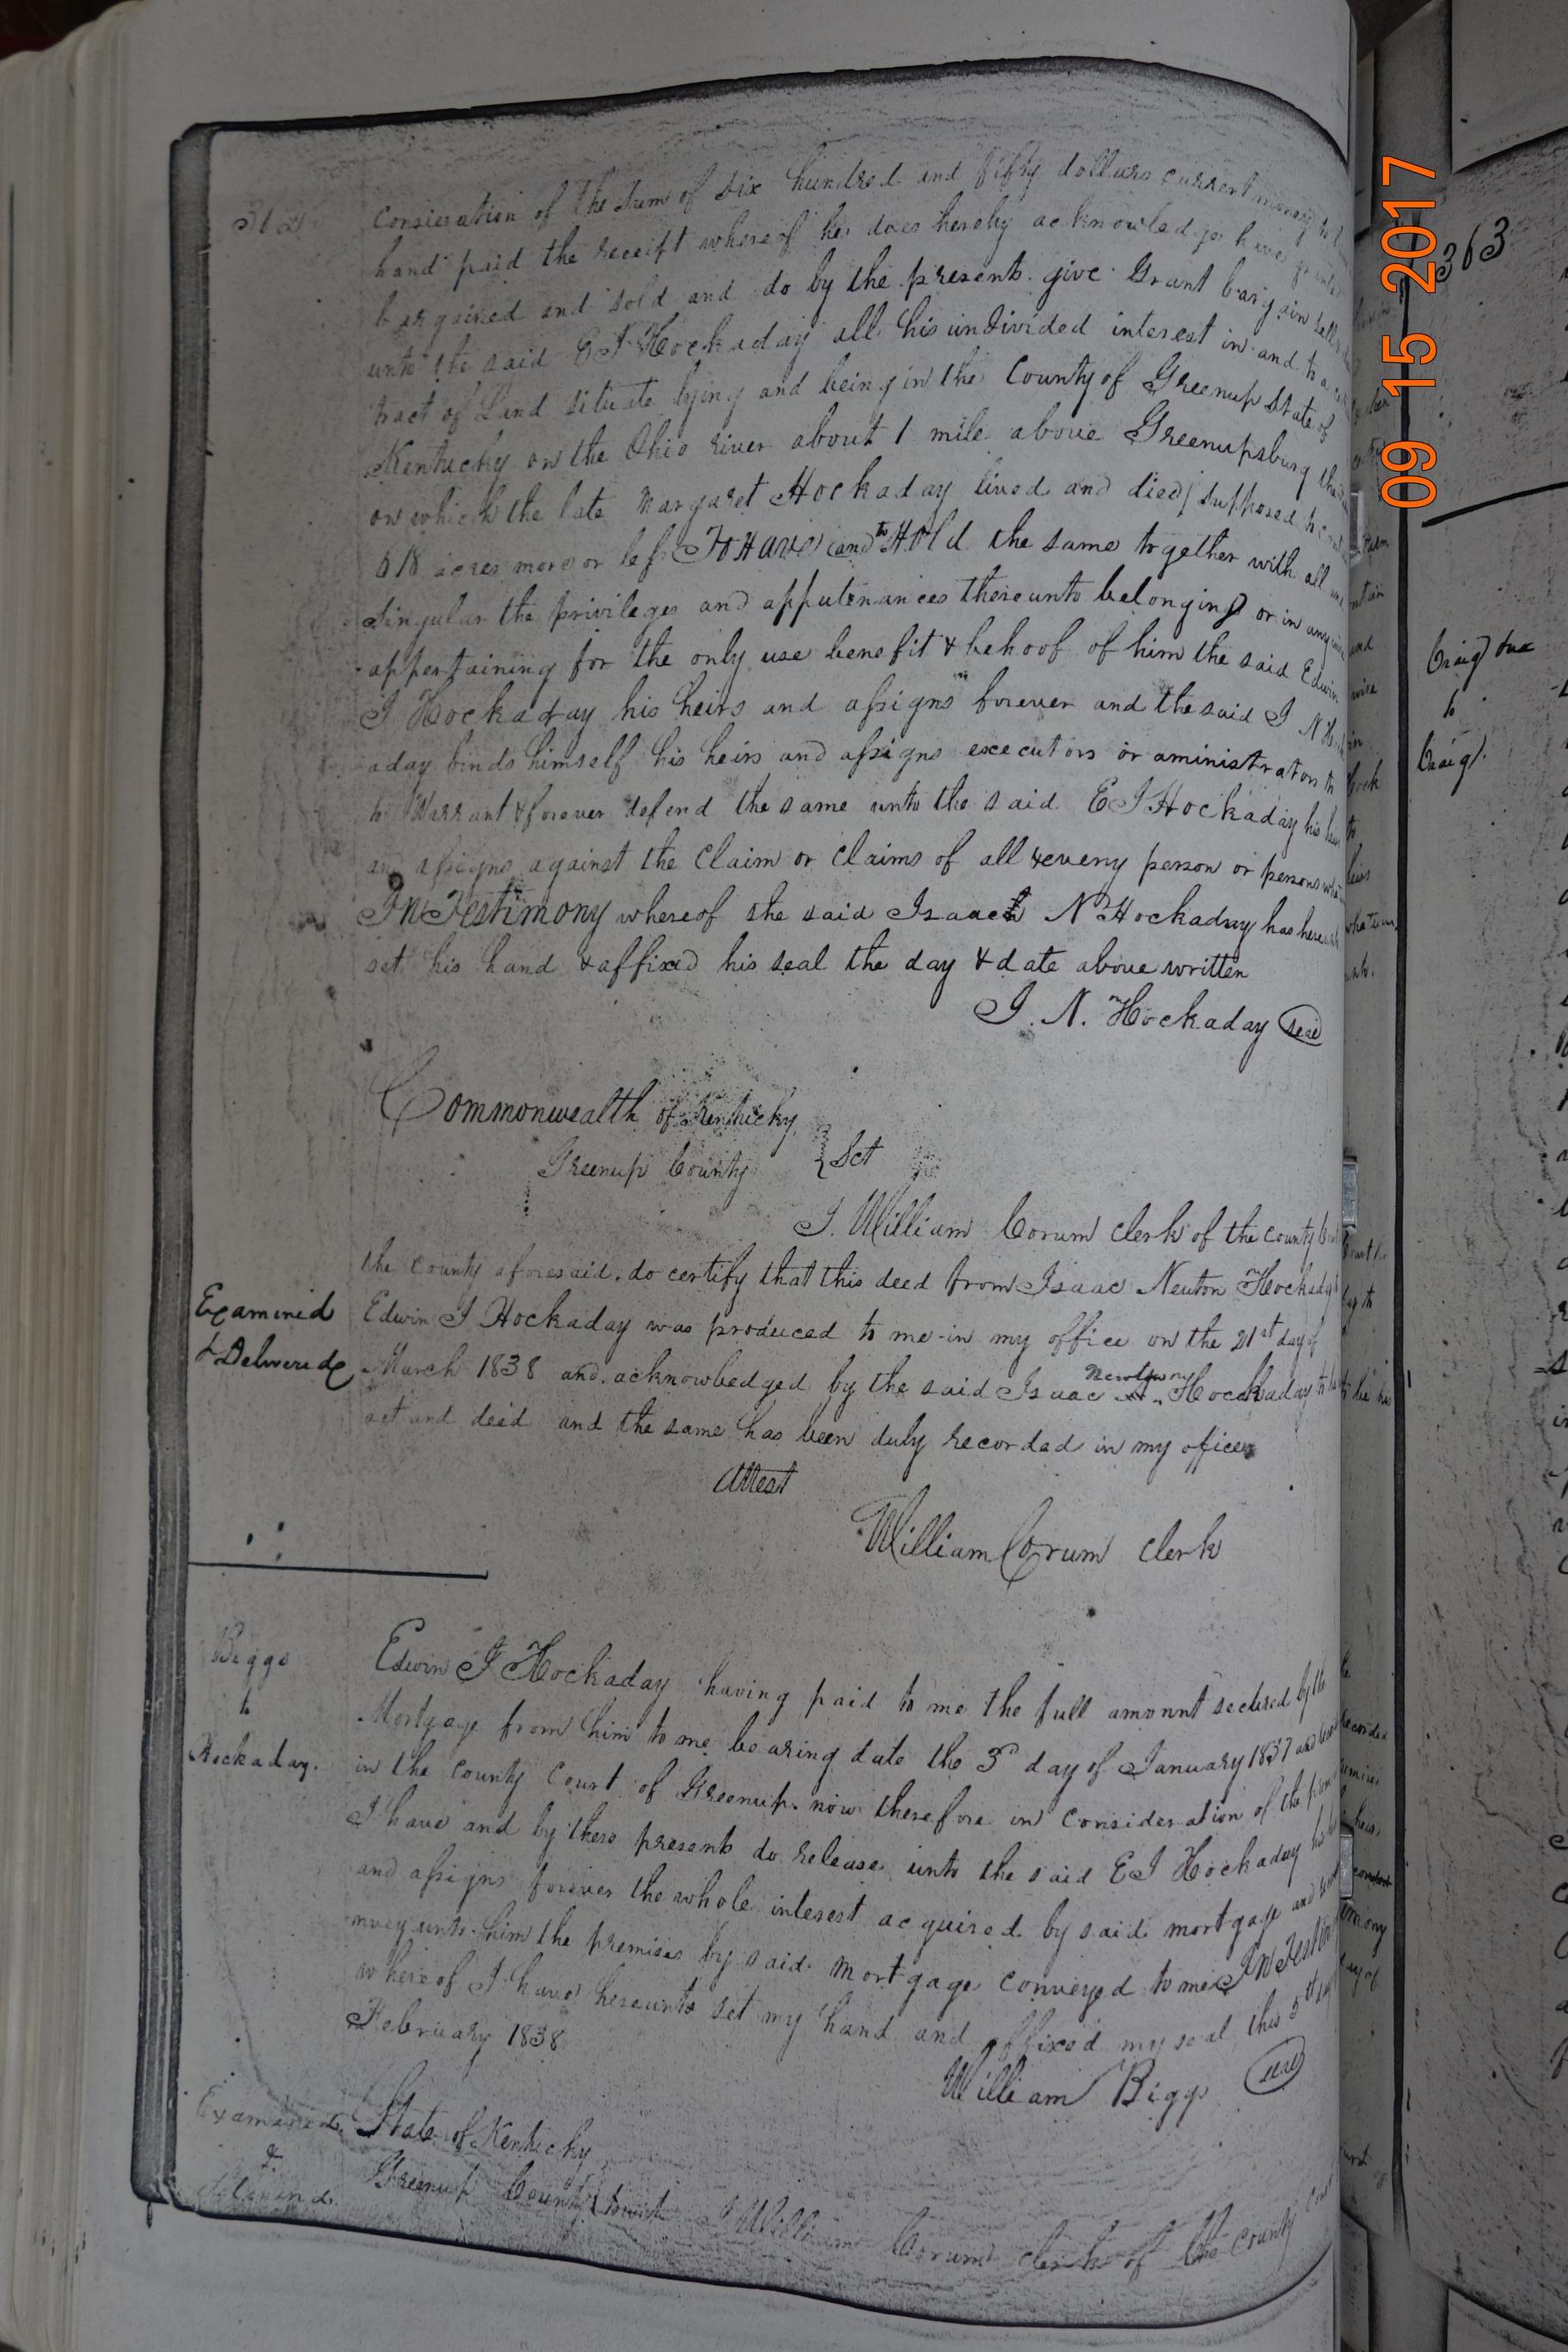 362
Consieration of the Sum of six hundred and fifty dollars current money to
hand paid the receift whereof he does hereby acknowledge have
bargained and sold and do by the presents give Grant bargain sell
unto the said E I Hockaday all his undivided interest in and to a
tract of Land situate lying and being in the County of Greenup State of
Kentucky on the Ohio river about 1 mile above Greenupsburg the
on which the late Margaret Hockaday lived and died supposed to
618 acres more or less To Have and to Hold the same together with all and
Singular the privileges and apputenances thereunto belonging or in any wise
appertaining for the only use benefit & behoof of him the said Edwin
I Hockaday his heirs and assigns forever and the said I N Hock
aday binds himself his heirs and assigns executors or aministrators to
to Warrant & forever defend the same unto the said E I Hockaday his heirs
an assigns against the Claim or Claims of all & every person or persons whatsoever
In Testimony whereof the said Isaac N Hockaday has hereunto
set his hand & affixed his seal the day & date above written
I. N. Hockaday seal
Commonwealth of Kentucky
Greenup County } Sct
I. William Corum clerk of the county Court
the County aforesaid do certify that this deed from Isaac Newton Hockaday to
Examined
& Delivered
Edwin I Hockaday was produced to me in my office on the 21st day of
March 1838 and acknowledged by the said Isaac Newton Hockaday to be his
act and deed and the same has been duly recorded in my office
Attest
William Corum Clerk
Biggs
to
Hockaday.
Edwin I Hockaday having paid to me the full amount secured by the
Mortgage from him to me bearing date the 3d day of January 1837 and recorded
in the county Court of Greenup. now therefore in Consideration of the premises
I have and by these presents do release unto the said E I Hockaday his heirs
and assigns forever the whole interest acquired by said mortgage and
nvey unto him the premises by said Mortgage Conveyed to me In Testimony
whereof I have hereunto set my hand and affixed my seal this 5th day of
February 1838
William Biggs seal
Examined
&
delivered
State of Kentucky
Greenup County I William Corum clerk of the County Court
363
Craig
to
Craig.
09 15 2017